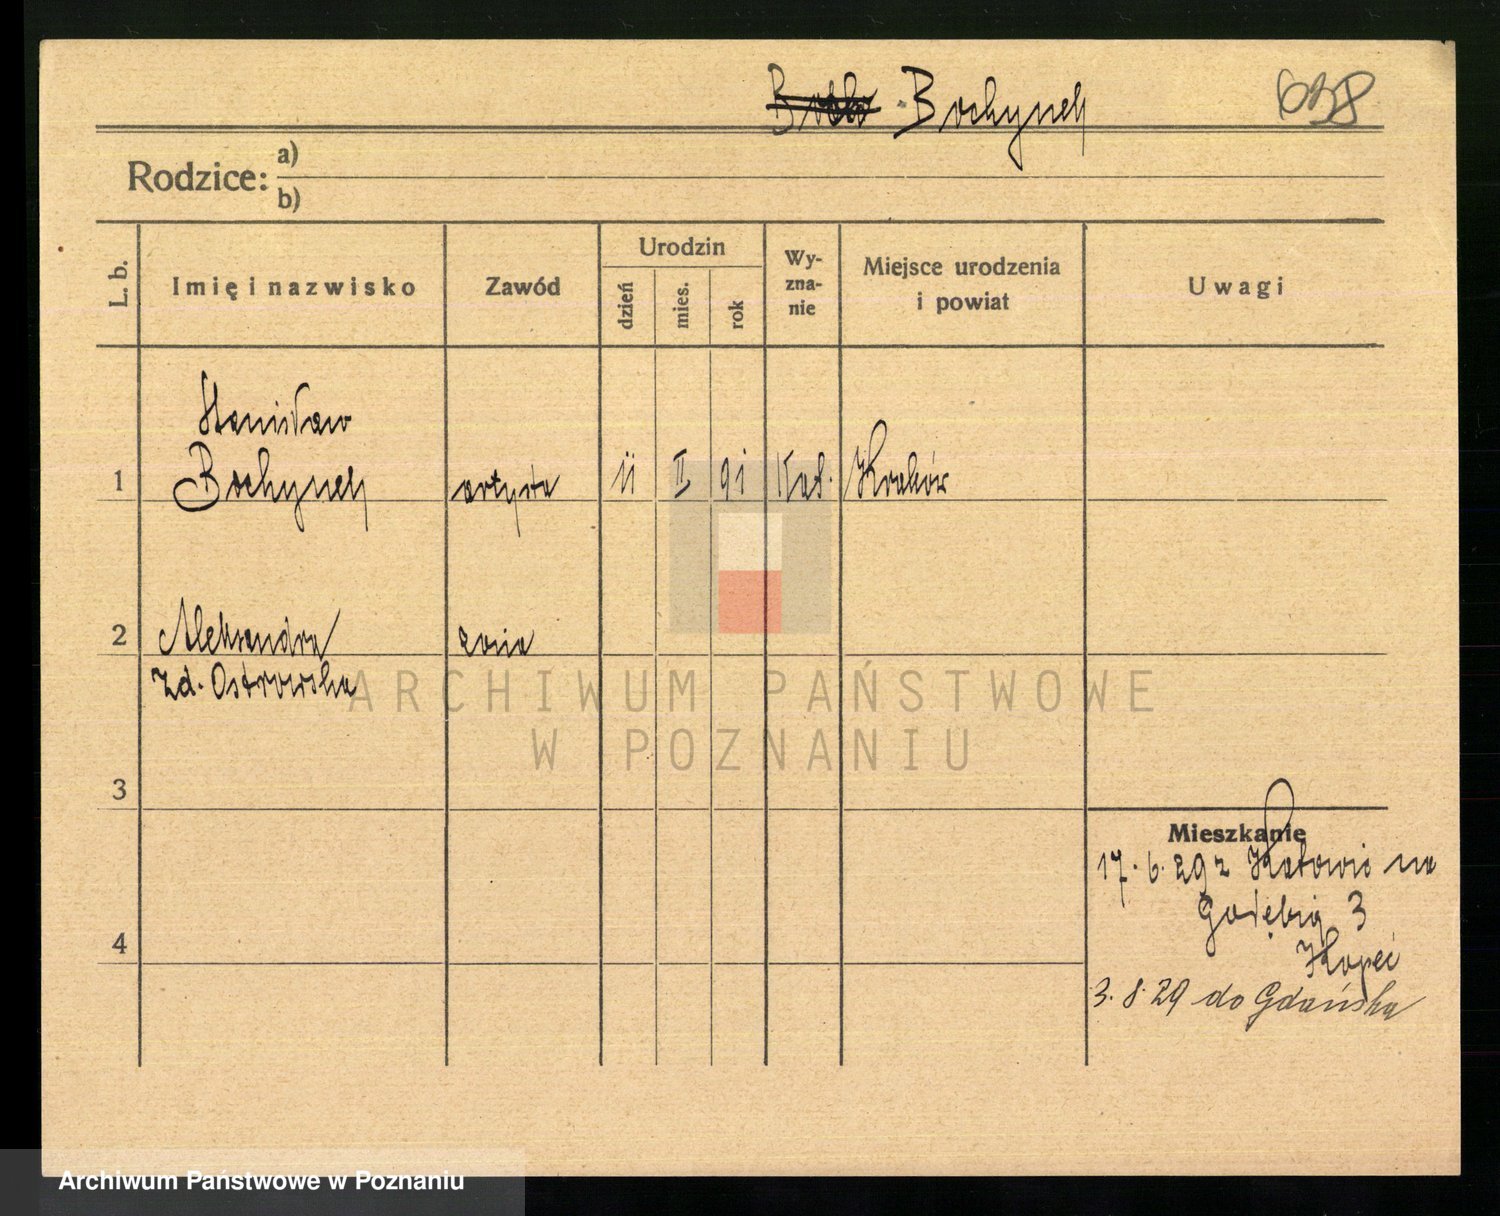 Bochynek 658
Rodzice: a)
b)
L. b. Imię i nazwisko Zawód Urodzin dzień mies. rok Wyznanie Miejsce urodzenia i powiat Uwagi
Stanisław
1 Bochynek artysta 11 II 91 Kat. Kraków
2 Aleksandra żona
zd. Ostrowska
ARCHIWUM PAŃSTWOWE
W POZNANIU
3
Mieszkanie
17. 6. 29 z Katowic na
Gołębią 3
4
Kopeć
3. 8. 29 do Gdańska
Archiwum Państwowe w Poznaniu